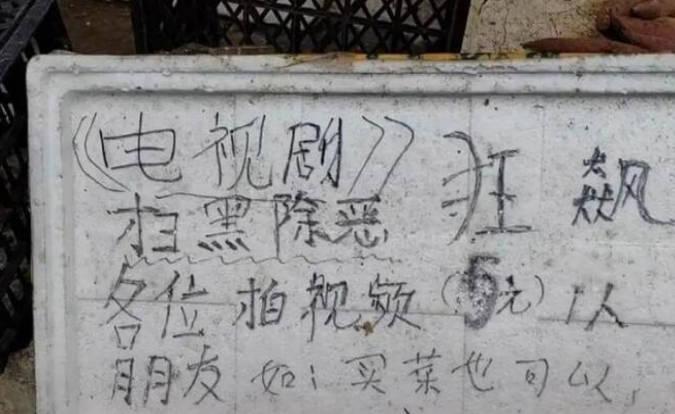 《电视剧》狂飙
扫黑除恶
各位拍视频(5元)1人
朋友如:买菜也可以,